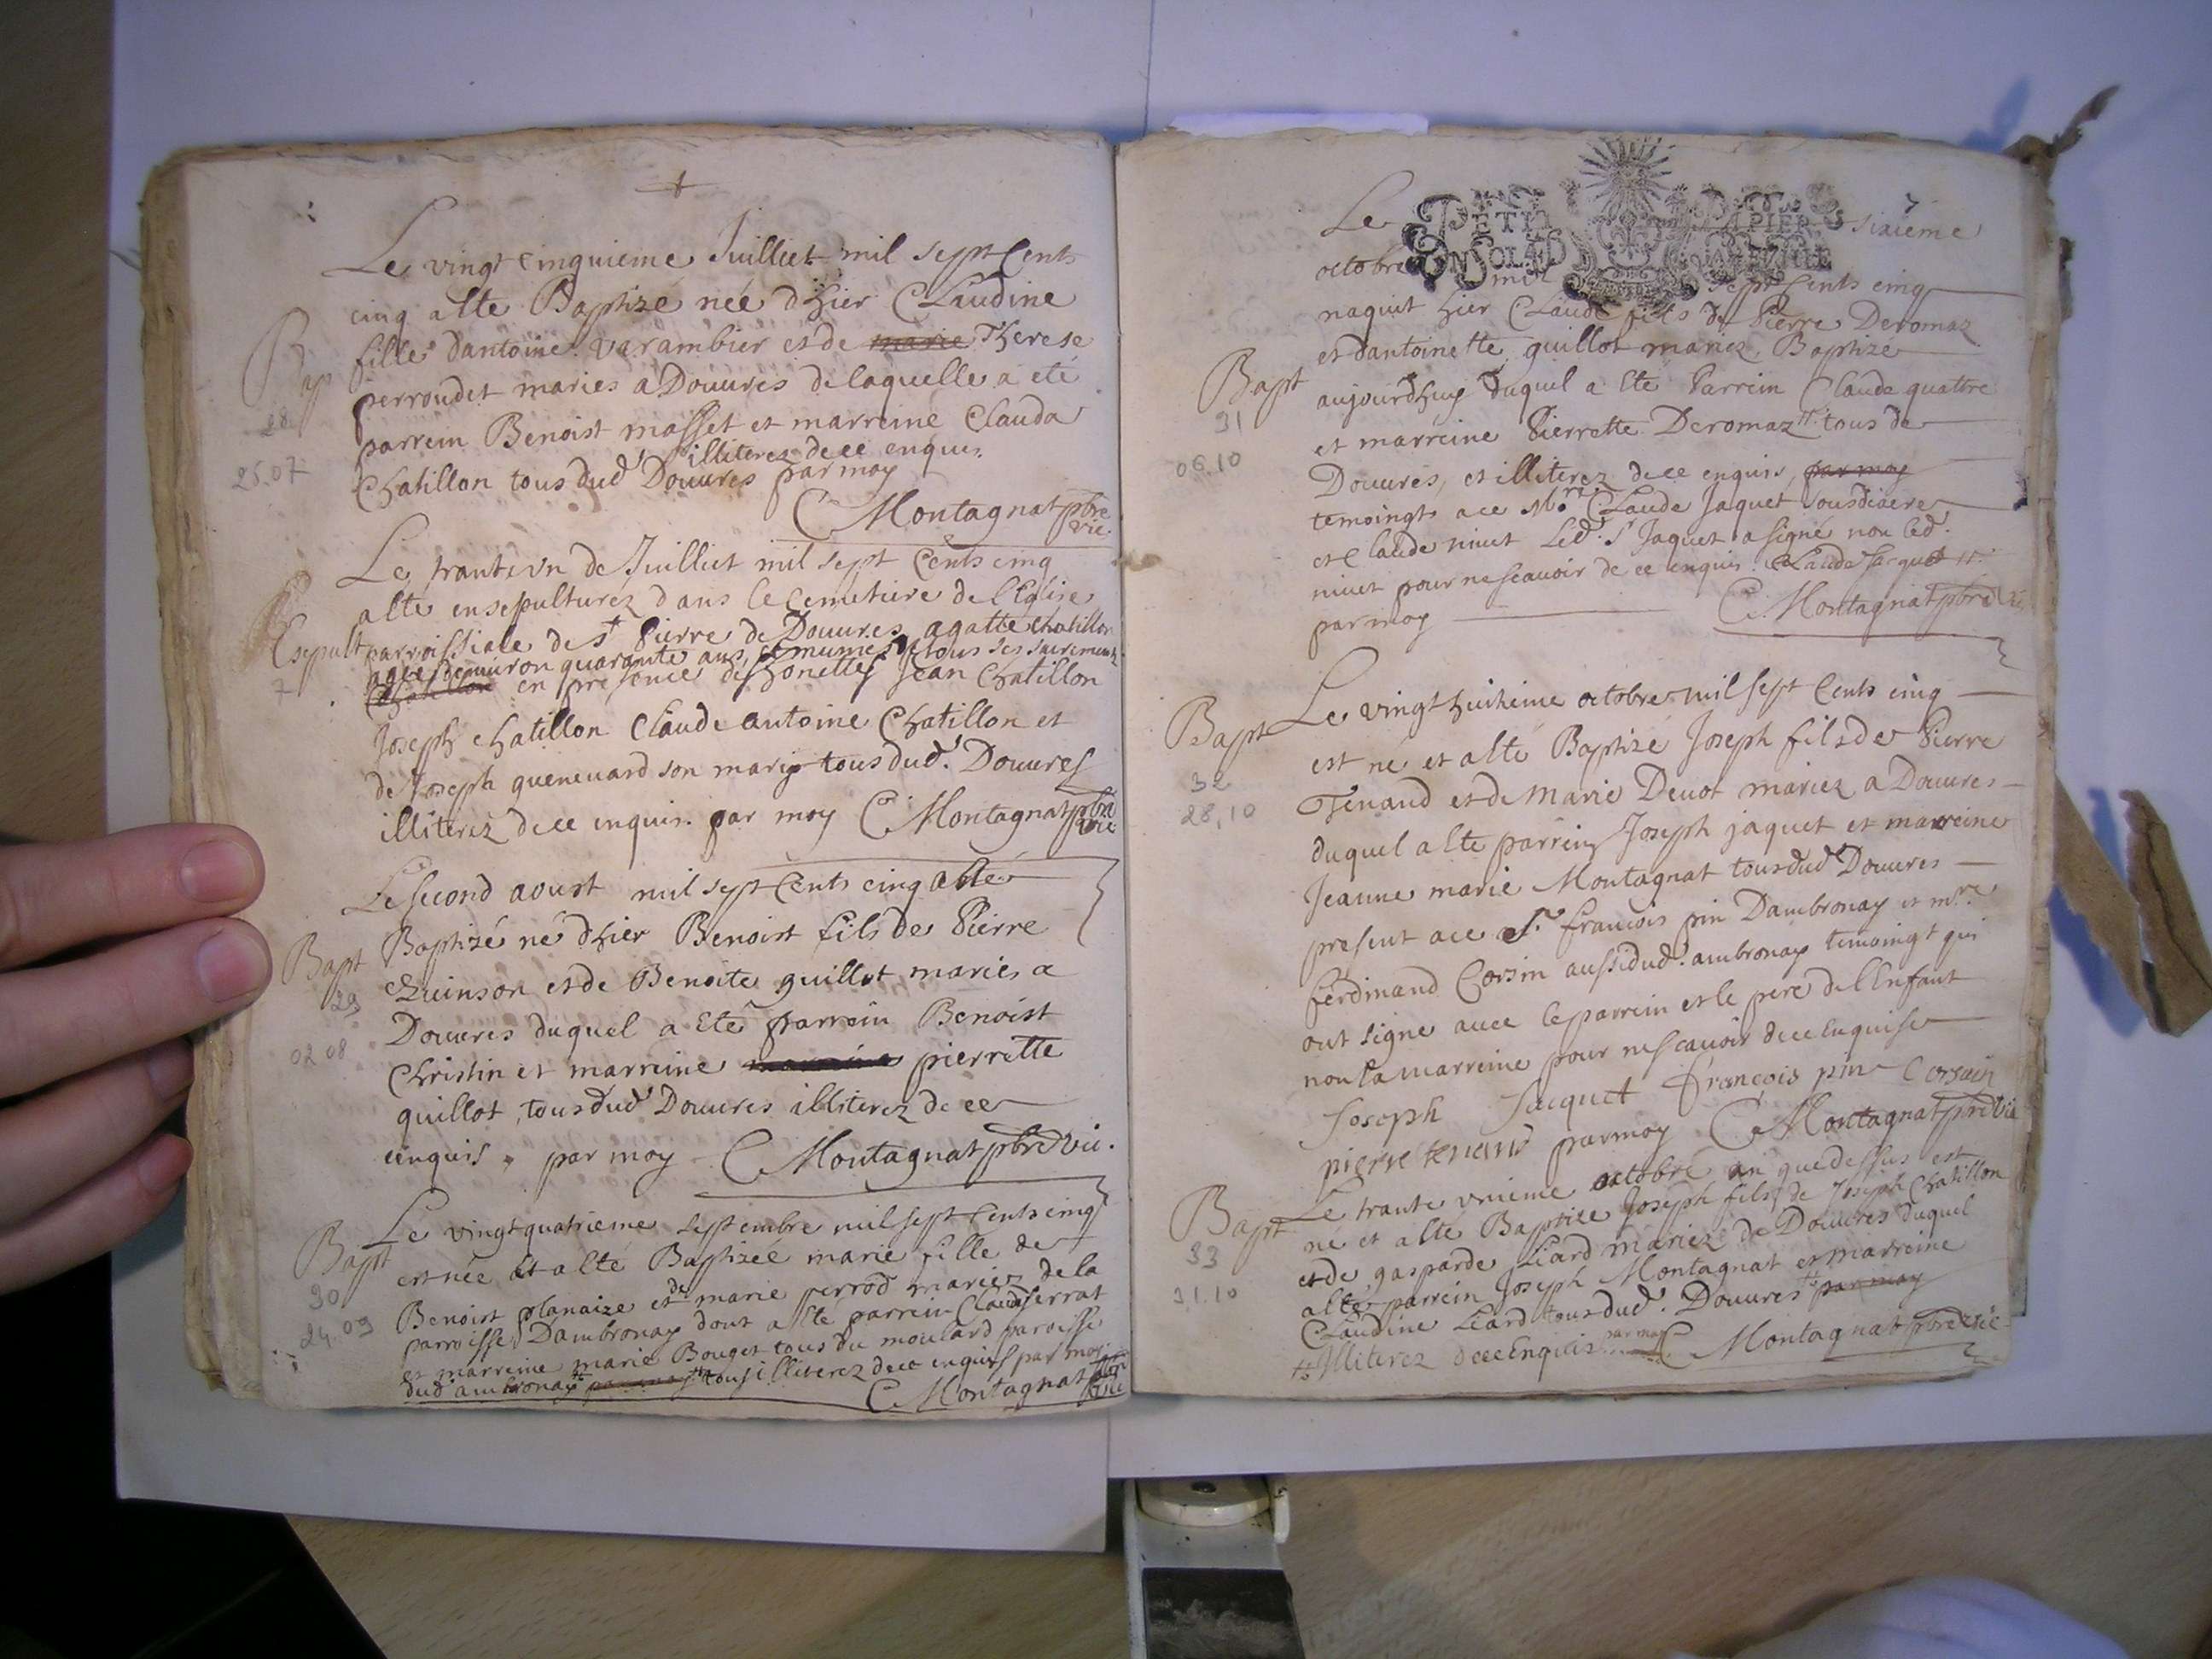 Le vingt cinquieme Juilliet mil sept Cents
cinq a lté Baptizé née d'hier Claudine
fille dantoine varambier et de marie Therese
perroudet maries a Douures de laquelle a eté
parrein Benoist masset et marreine Clauda
illiterez de ce enquis
Chatillon tous dud Douures par moy
C Montagnat pbre
vic.
Bap
28
25.07
Le trante vn de Juilliet mil sept Cents cinq
a lté ensepulturez dans le Cemetiere de l'Eglise
parroissiale de St Pierre de Douures agatte chatillon
agée denuiron quarante ans, et munies de tous ses sacrements
Chatillon en presence des honettes Jean Chatillon
Joseph chatillon Claude antoine Chatillon et
de Joseph queneuard son mary tous dud. Douures
illiterez de ce enquis. par moy C Montagnat pbre
vic
Esepult
7
Le second aoust mil sept Cents cinq a lté
Baptizé né d'hier Benoist fils de Pierre
Quinson et de Benoite guillot maries a
Douures duquel a Eté parrein Benoist
Christin et marreine pierrette
guillot, tous dud Douures illiterez de ce
enquis. par moy C Montagnat pbre vic.
Bapt
29
02 08
Le vingt quatrieme septembre mil sept Cents cinq
est née et a lté Baptizée marie fille de
Benoist planaize et de marie perrod mariez de la
parroisse Dambronay dont a lté parrein Claude serrat
et marreine marie Bouget tous du moulard paroisse
dud ambronay tous illiterez de ce enquis par moy
C Montagnat pbre
vic
Bapt
30
24.09
7
PETIT PAPIER
Le sixieme
octobre mil sept Cents cinq
naquit hier Claude fils de Pierre Deromaz
et dantoinette guillot mariez, Baptizé
aujourdhuy duquel a Eté Parrein Claude quattre
et marreine Pierrette Deromaz tous de
Douures, et illiterez de ce enquis, par moy
temoingts a ce Mre Claude Jaquet sousdiacre
et Claude niuet Led. Sr Jaquet a signé non led.
niuet pour ne scauoir de ce enquis. Claude Jacquet
par moy C. Montagnat pbre vic
Bapt
31
06.10
Le vingt huitieme octobre mil sept Cents cinq
est né et a lté Baptizé Joseph fils de Pierre
Tenand et de Marie Deuot mariez a Douures
duquel a lté parrein Joseph jaquet et marreine
Jeanne marie Montagnat tous dud Douures
present a ce Sr. francois pin Dambronay et mre
ferdinand Corsin aussi dud. ambronay temoingt qui
ont signe auec le parrein et le pere de l'Enfant
non la marreine pour ne scauoir de ce Enquise
Joseph Jacquet francois pin Corsain
pierre tenand par moy C Montagnat pbre vic
Bapt
32
28.10
Le trante vnieme octobre an que dessus est
né et a lté Baptize Joseph fils de Joseph Chatillon
et de gasparde Liard mariez de Douures duquel
a lté parrein Joseph Montagnat et marreine
Claudine Liard tous dud. Douures par moy
illiterez de ce Enquis par moy C Montagnat pbre vic
Bapt
33
31.10